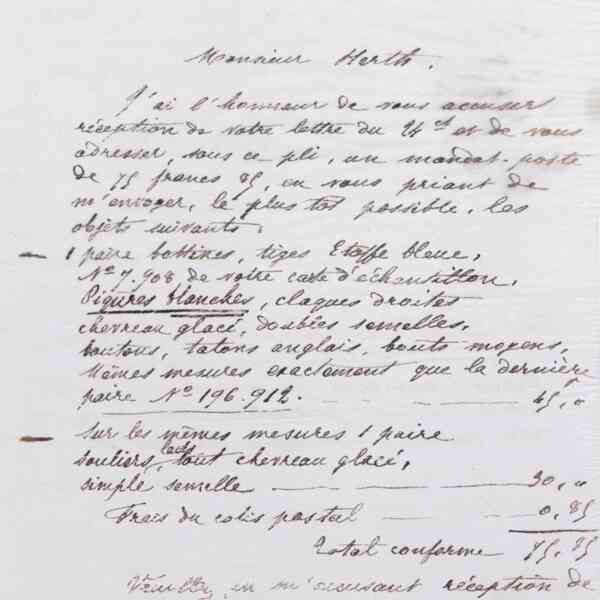 Monsieur Herth.
J'ai l'honneur de vous accuser
réception de votre lettre du 24 ct et de vous
adresser, sous ce pli, un mandat-poste
de 75 francs 85, en vous priant de
m'envoyer, le plus tôt possible, les
objets suivants.
— 1 paire bottines, tiges Etoffe bleue,
No 7.908 de votre carte d'échantillon,
Piqures blanches, claques droites
chevreau glacé, doubles semelles,
boutons, talons anglais, bouts moyens,
Mêmes mesures exactement que la dernière
paire No 196.912. — 45, "
— Sur les mêmes mesures 1 paire
souliers, lacés tout chevreau glacé,
simple semelle — 30, "
Frais du colis postal — 0,85
Total conforme 75,85
en m'accusant réception de